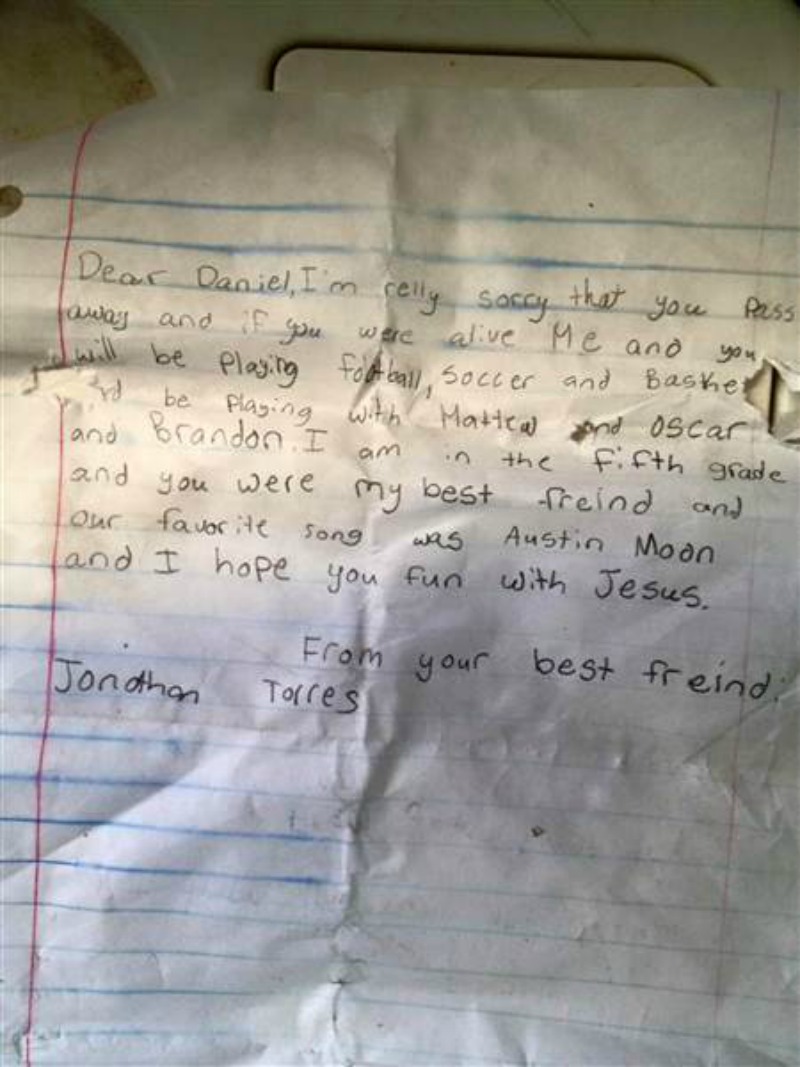 Dear Daniel, I'm relly sorry that you Pass
away and if you were alive Me and you
will be Playing football, soccer and Baske
be Playing with Mattew and OScar
and Brandon. I am in the fifth grade
and you were my best freind and
our favorite song was Austin Moon
and I hope you fun with Jesus.
From your best freind:
Jonathan Torres